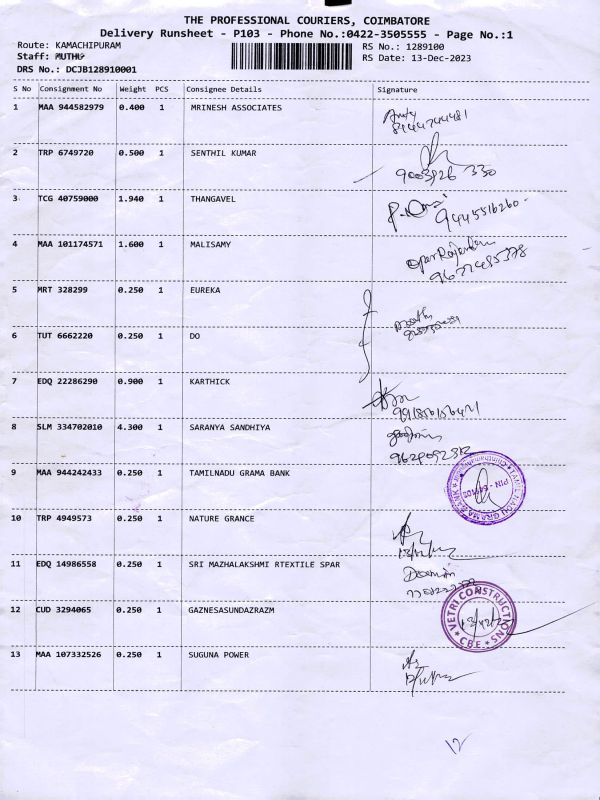 THE PROFESSIONAL COURIERS, COIMBATORE
Delivery Runsheet - P103 - Phone No.:0422-3505555 - Page No.:1
Route: KAMACHIPURAM RS No.: 1289100
Staff: MUTHU RS Date: 13-Dec-2023
DRS No.: DCJB128910001
S No Consignment No Weight PCS Consignee Details Signature
1 MAA 944582979 0.400 1 MRINESH ASSOCIATES
8144744481
2 TRP 6749720 0.500 1 SENTHIL KUMAR
9003926 330
3 TCG 40759000 1.940 1 THANGAVEL
9445516260
4 MAA 101174571 1.600 1 MALISAMY
5 MRT 328299 0.250 1 EUREKA
6 TUT 6662220 0.250 1 DO
7 EDQ 22286290 0.900 1 KARTHICK
8 SLM 334702010 4.300 1 SARANYA SANDHIYA
9 MAA 944242433 0.250 1 TAMILNADU GRAMA BANK
TAMIL NADU GRAMA BANK
10 TRP 4949573 0.250 1 NATURE GRANCE
11 EDQ 14986558 0.250 1 SRI MAZHALAKSHMI RTEXTILE SPAR
12 CUD 3294065 0.250 1 GAZNESASUNDAZRAZM
VETRI CONSTRUCTIONS
CBE.
13 MAA 107332526 0.250 1 SUGUNA POWER
12